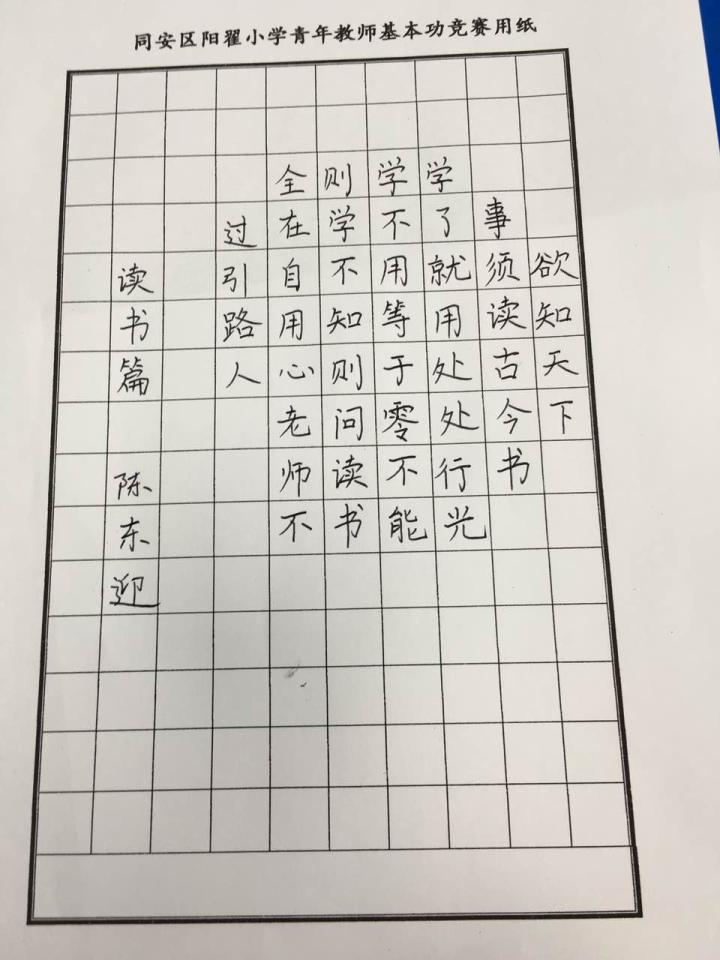 同安区阳翟小学青年教师基本功竞赛用纸
欲知天下
事须读古今书
学了就用处处行光
学不用等于零不能
则学不知则问读书
全在自用心老师不
过引路人
读书篇 陈东迎